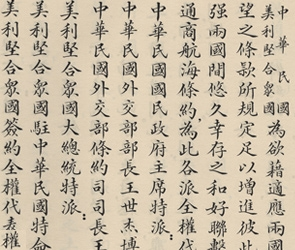 中華民國
美利堅合衆國
為欲藉適應兩國
望之條款所規定足以增進彼此
强兩國間悠久幸存之和好聯繫
通商航海條約,為此各派全權代
中華民國國民政府主席特派:
中華民國外交部部長王世杰博
中華民國外交部條約司司長王
美利堅合衆國大總統特派:
美利堅合衆國駐中華民國特命
美利堅合衆國簽約全權代表權